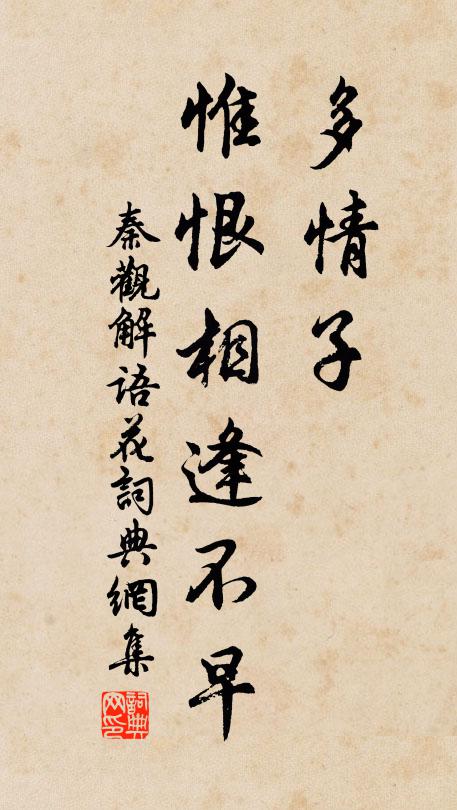 多情子
惟恨相逢不早
秦觀解語花詞典網集
詞典网印